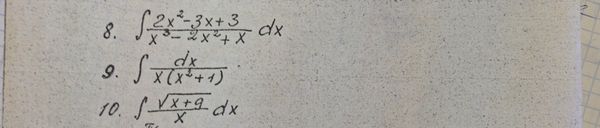 8. ∫ (2x²-3x+3)/(x³-2x²+x) dx
9. ∫ dx/(x(x²+1))
10. ∫ √(x+9)/x dx